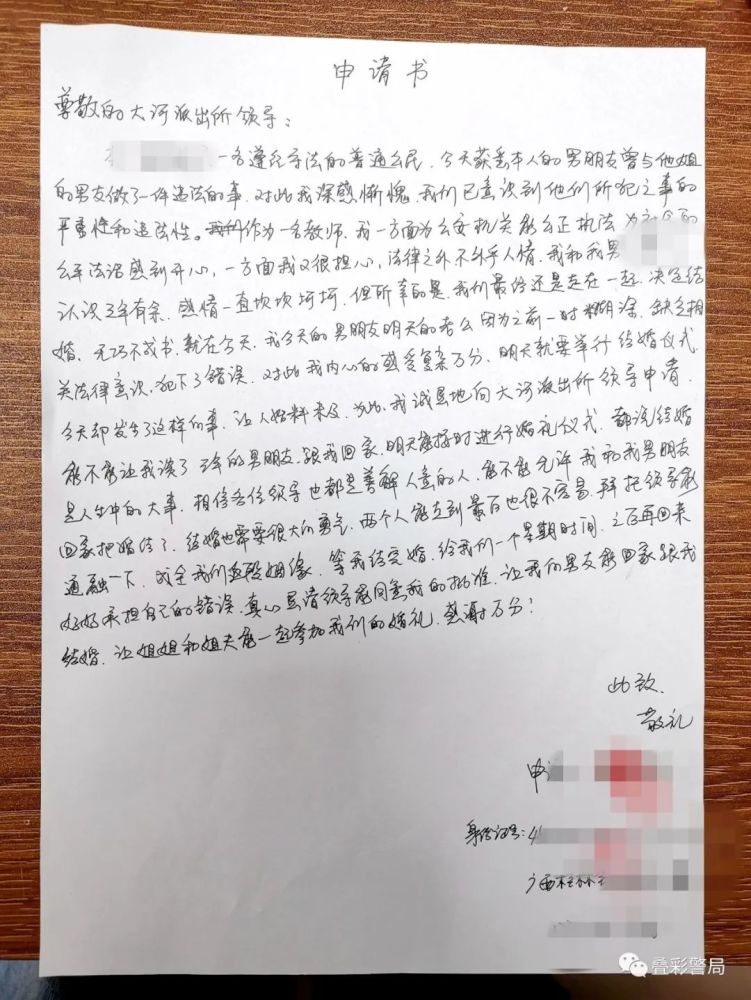 申请书
尊敬的大河派出所领导：
一名遵纪守法的普通公民，今天获悉本人的男朋友曾与他姐
的男友做了一件违法的事，对此我深感惭愧，我们已意识到他们所犯之事的
严重性和违法性。我们作为一名教师，我一方面为公安机关能公正执法为社会的
公平法治感到开心，一方面我又很担心，法律之外不外乎人情，我和我男
认识3年有余，感情一直坎坎坷坷，但所幸的是，我们最终还是走在一起，决定结
婚，无巧不成书，就在今天，我今天的男朋友明天的老公因为之前一时糊涂，缺乏相
关法律意识，犯下了错误，对此我内心的感受复杂万分，明天就要举行结婚仪式，
今天却发生了这样的事，让人始料未及，为此，我诚恳地向大河派出所领导申请，
能不能让我谈了3年的男朋友，跟我回家，明天能按时进行婚礼仪式，都说结婚
是人生中的大事，相信各位领导也都是善解人意的人，能不能允许我和我男朋友
回家把婚结了，结婚也需要很大的勇气，两个人能走到最后也很不容易，拜托领导能
通融一下，成全我们这段姻缘，等我结完婚，给我们一个星期时间，之后再回来
好好承担自己的错误，真心恳请领导能同意我的批准，让我的男友能回家跟我
结婚，让姐姐和姐夫能一起参加我们的婚礼，感谢万分！
此致
敬礼
申
身份证号：4
广西桂林
叠彩警局